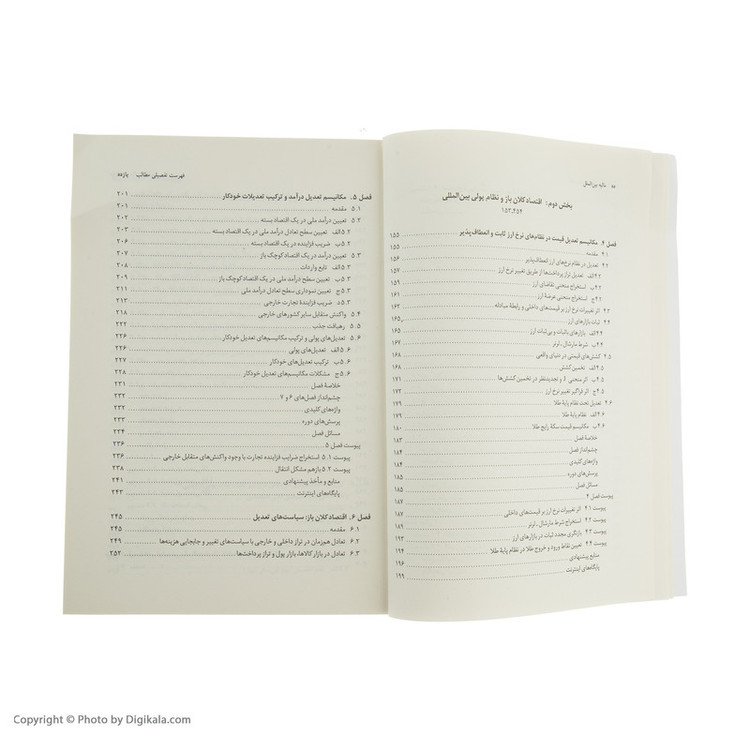 ده مالیه بین‌الملل
بخش دوم: اقتصاد کلان باز و نظام پولی بین‌المللی
۱۵۳،۴۵۴
فصل ۴. مکانیسم تعدیل قیمت در نظام‌های نرخ ارز ثابت و انعطاف‌پذیر ۱۵۵
۴.۱ مقدمه
۴.۲ تعدیل در نظام نرخ‌های ارز انعطاف‌پذیر ۱۵۶
۴.۲الف تعدیل تراز پرداخت‌ها از طریق تغییر نرخ ارز ۱۵۷
۴.۲ب استخراج منحنی تقاضای ارز
۴.۲ج استخراج منحنی عرضهٔ ارز ۱۶۱
۴.۳ اثر تغییرات نرخ ارز بر قیمت‌های داخلی و رابطهٔ مبادله ۱۶۳
۴.۴ ثبات بازارهای ارز ۱۶۵
۴.۴الف بازارهای باثبات و بی‌ثبات ارز
۴.۴ب شرط مارشال ـ لرنر ۱۶۷
۴.۵ کشش‌های قیمتی در دنیای واقعی
۴.۵الف تخمین کشش
۴.۵ب اثر منحنی J و تجدیدنظر در تخمین کشش‌ها ۱۷۱
۴.۵ج اثر فراگیر تغییر نرخ ارز ۱۷۳
۴.۶ تعدیل تحت نظام پایهٔ طلا ۱۷۹
۴.۶الف نظام پایهٔ طلا
۴.۶ب مکانیسم قیمت سکهٔ رایج طلا ۱۸۰
خلاصهٔ فصل ۱۸۳
چشم‌انداز فصل ۱۸۴
واژه‌های کلیدی
پرسش‌های دوره
مسائل فصل ۱۸۵
پیوست فصل ۴ ۱۸۷
پیوست ۴.۱ اثر تغییرات نرخ ارز بر قیمت‌های داخلی
پیوست ۴.۲ استخراج شرط مارشال ـ لرنر
پیوست ۴.۳ بازنگری مجدد ثبات در بازارهای ارز
پیوست ۴.۴ تعیین نقاط ورود و خروج طلا در نظام پایهٔ طلا ۱۹۴
منابع پیشنهادی
پایگاه‌های اینترنت ۱۹۹
فهرست تفصیلی مطالب یازده
فصل ۵. مکانیسم تعدیل درآمد و ترکیب تعدیلات خودکار ۲۰۱
۵.۱ مقدمه ۲۰۱
۵.۲ تعیین درآمد ملی در یک اقتصاد بسته ۲۰۲
۵.۲الف تعیین سطح تعادل درآمد ملی در یک اقتصاد بسته ۲۰۲
۵.۲ب ضریب فزاینده در یک اقتصاد بسته ۲۰۶
۵.۳ تعیین درآمد ملی در یک اقتصاد کوچک باز ۲۰۷
۵.۳الف تابع واردات ۲۰۸
۵.۳ب تعیین سطح درآمد ملی در یک اقتصاد کوچک باز ۲۰۹
۵.۳ج تعیین نموداری سطح تعادل درآمد ملی ۲۱۱
۵.۳د ضریب فزایندهٔ تجارت خارجی ۲۱۳
۵.۴ واکنش متقابل سایر کشورهای خارجی ۲۱۸
۵.۵ رهیافت جذب ۲۲۲
۵.۶ تعدیل‌های پولی و ترکیب مکانیسم‌های تعدیل خودکار ۲۲۶
۵.۶الف تعدیل‌های پولی ۲۲۶
۵.۶ب ترکیب تعدیل‌های خودکار ۲۲۷
۵.۶ج مشکلات مکانیسم‌های تعدیل خودکار ۲۲۸
خلاصهٔ فصل ۲۳۱
چشم‌انداز فصل‌های ۶ و ۷ ۲۳۲
واژه‌های کلیدی ۲۳۳
پرسش‌های دوره ۲۳۳
مسائل فصل ۲۳۴
پیوست فصل ۵ ۲۳۶
پیوست ۵.۱ استخراج ضرایب فزایندهٔ تجارت با وجود واکنش‌های متقابل خارجی ۲۳۶
پیوست ۵.۲ بازهم مشکل انتقال ۲۳۸
منابع و مآخذ پیشنهادی ۲۴۱
پایگاه‌های اینترنت ۲۴۳
فصل ۶. اقتصاد کلان باز: سیاست‌های تعدیل ۲۴۵
۶.۱ مقدمه ۲۴۵
۶.۲ تعادل هم‌زمان در تراز داخلی و خارجی با سیاست‌های تغییر و جابجایی هزینه‌ها ۲۴۹
۶.۳ تعادل در بازار کالاها، بازار پول و تراز پرداخت‌ها ۲۵۲
Copyright © Photo by Digikala.com